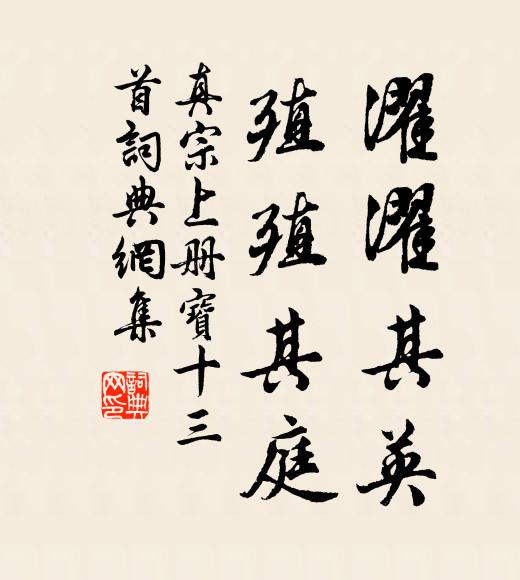 濯濯其英
殖殖其庭
真宗上册寶十三
首詞典網集
詞典
网印